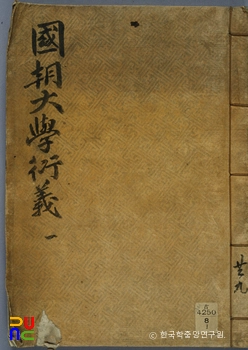 國朝大學衍義 一
共九
4250
6
1
ⓒ 한국학중앙연구원.